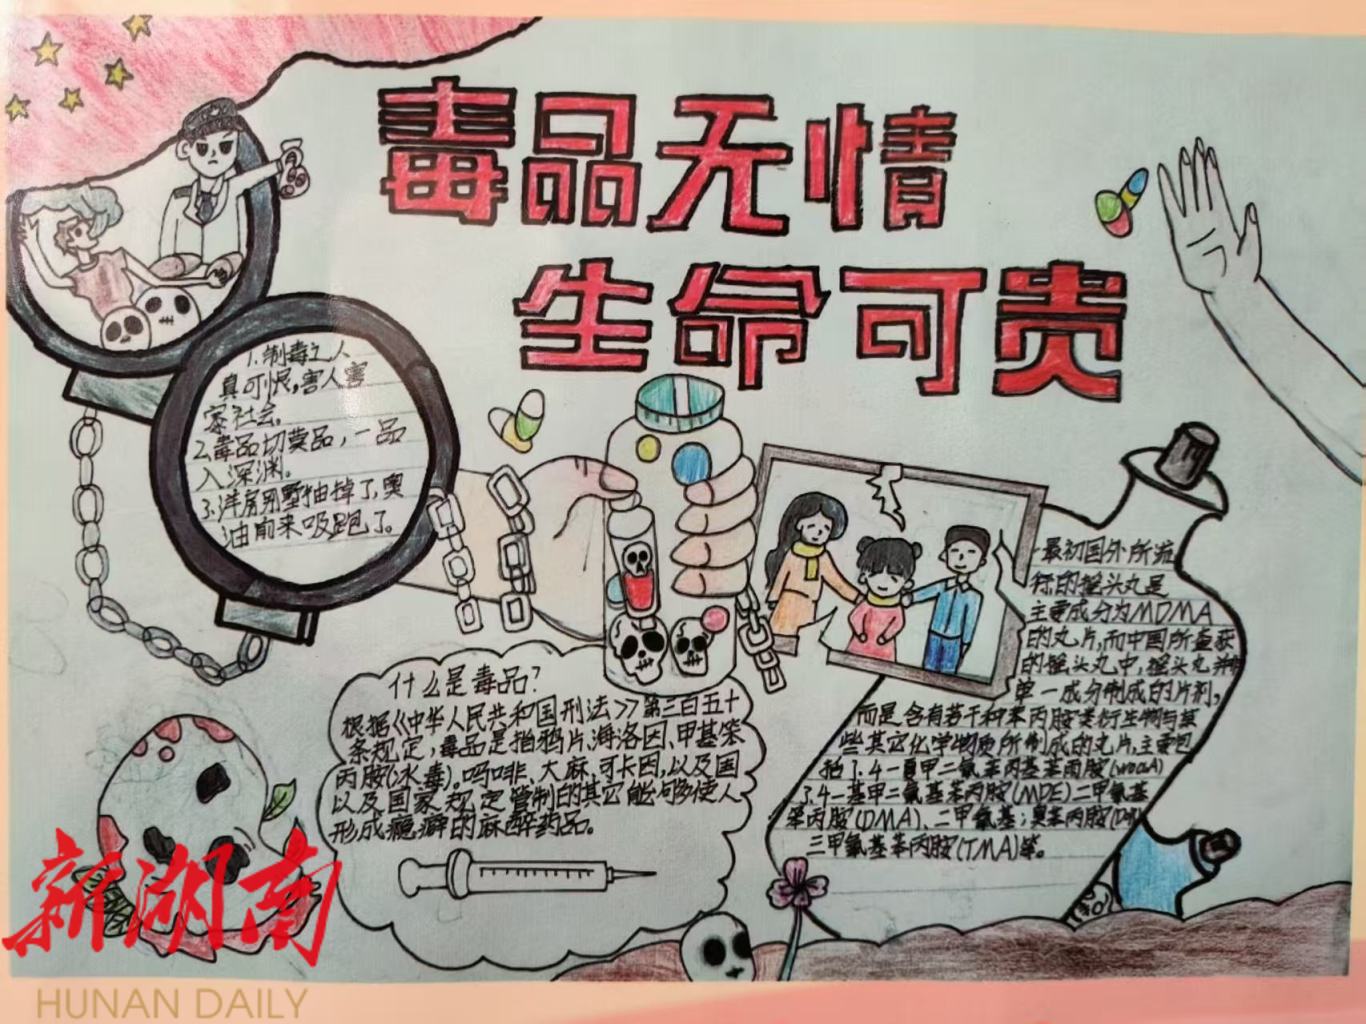 毒品无情
生命可贵
1.制毒之人
真可恨,害人害
家社会。
2.毒品切莫品,一品
入深渊。
3.洋房别墅抽掉了,奥
油前来吸跑了。
什么是毒品?
根据《中华人民共和国刑法》第三百五十
条规定,毒品是指鸦片、海洛因、甲基苯
丙胺(冰毒)、吗啡、大麻、可卡因,以及国
以及国家规定管制的其它能够使人
形成瘾癖的麻醉药品。
最初国外所流
称的摇头丸是
主要成分为MDMA
的丸片,而中国所查获
的摇头丸中,摇头丸并
单一成分制成的片剂,
而是含有若干种苯丙胺类衍生物与某
些其它化学物质所制成的丸片,主要包
3.4一基甲二氧基苯丙胺(MDE)二甲氧基
苯丙胺(DMA)、二甲氧基;臭苯丙胺
三甲氧基苯丙胺(TMA)等。
新湖南
HUNAN DAILY